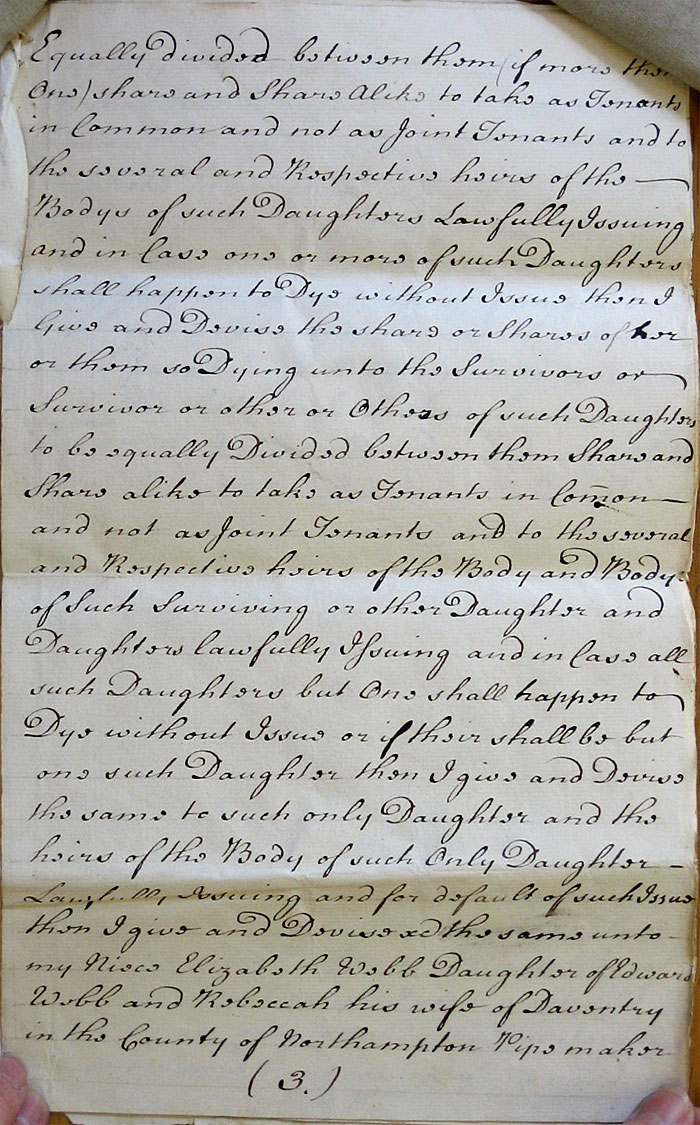 Equally divided between them (if more then
One) share and Share Alike to take as Tenants
in Common and not as Joint Tenants and to
the several and Respective heirs of the
Bodys of such Daughters Lawfully Issuing
and in Case one or more of such Daughters
shall happen to Dye without Issue then I
Give and Devise the share or Shares of her
or them so Dying unto the Survivors or
Survivor or other or Others of such Daughters
to be equally Divided between them Share and
Share alike to take as Tenants in Com̄on
and not as Joint Tenants and to the several
and Respective heirs of the Body and Bodys
of Such Surviving or other Daughter and
Daughters lawfully Issuing and in Case all
such Daughters but One shall happen to
Dye without Issue or if their shall be but
one such Daughter then I give and Devise
the same to such only Daughter and the
heirs of the Body of such Only Daughter -
Lawfully Issuing and for default of such Issue
then I give and Devise the same unto -
my Niece Elizabeth Webb Daughter of Edward
Webb and Rebeccah his wife of Daventry
in the County of Northampton Pipe maker
(3.)